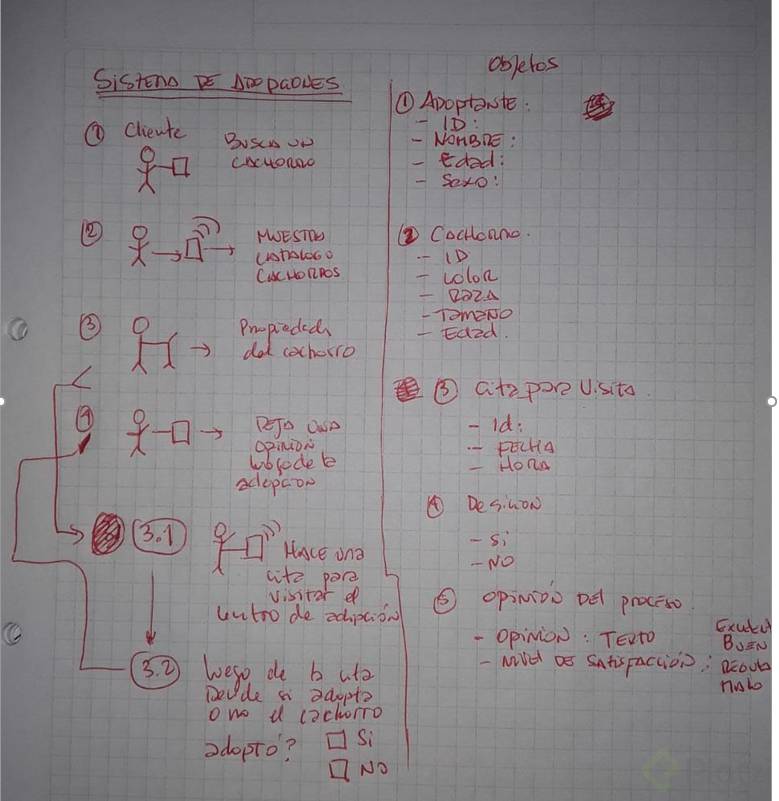 SISTEMA DE ADOPCIONES
① Cliente
BUSCA UN
CACHORRO
②
MUESTRA
CATALOGO
CACHORROS
③
Propiedada
del cachorro
④
DEJA UNA
OPINION
luego de la
adopcion
3.1
HACE UNA
cita para
visitar el
centro de adopción
3.2
luego de la cita
Decide si adopta
o no el cachorro
adoptó?
Si
NO
Objetos
① Adoptante:
- ID:
- NOMBRE:
- Edad:
- Sexo:
② Cachorro.
- ID
- color
- RAZA
- TAMAÑO
- Edad.
③ Cita para Visita.
- Id:
- FECHA
- HORA
④ Desicion
- Si
- NO
⑤ OPINIÓN DEL PROCESO
- OPINION: TEXTO
- NIVEL DE SATISFACCIÓN:
BUEN
MALO